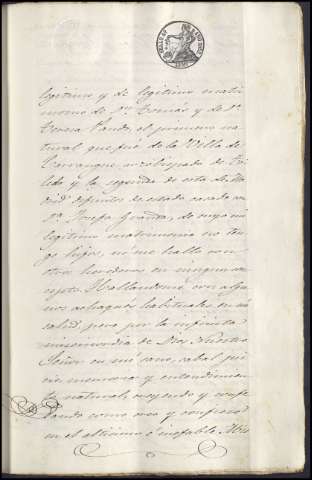 legitimo y de legitimo matri
monio de Dn. Tomás y de Da.
Teresa Pando, el primero na
tural que fué de la Villa de
Carranque arzobispado de To
ledo y la segunda de esta de Ma
drid difuntos de estado casado con
Da. Josefa Granda, de cuyo
legitimo matrimonio no ten
go hijos, ni me hallo con
otros herederos en ningun con
cepto. Hallandome con algu
nos achaques habituales en mi
salud, pero por la infinita
misericordia de Dios Nuestro
Señor en mi sano, cabal jui
cio memoria y entendimien
to natural, creyendo y confe
sando como creo y confieso
en el altisimo é inefable Mis